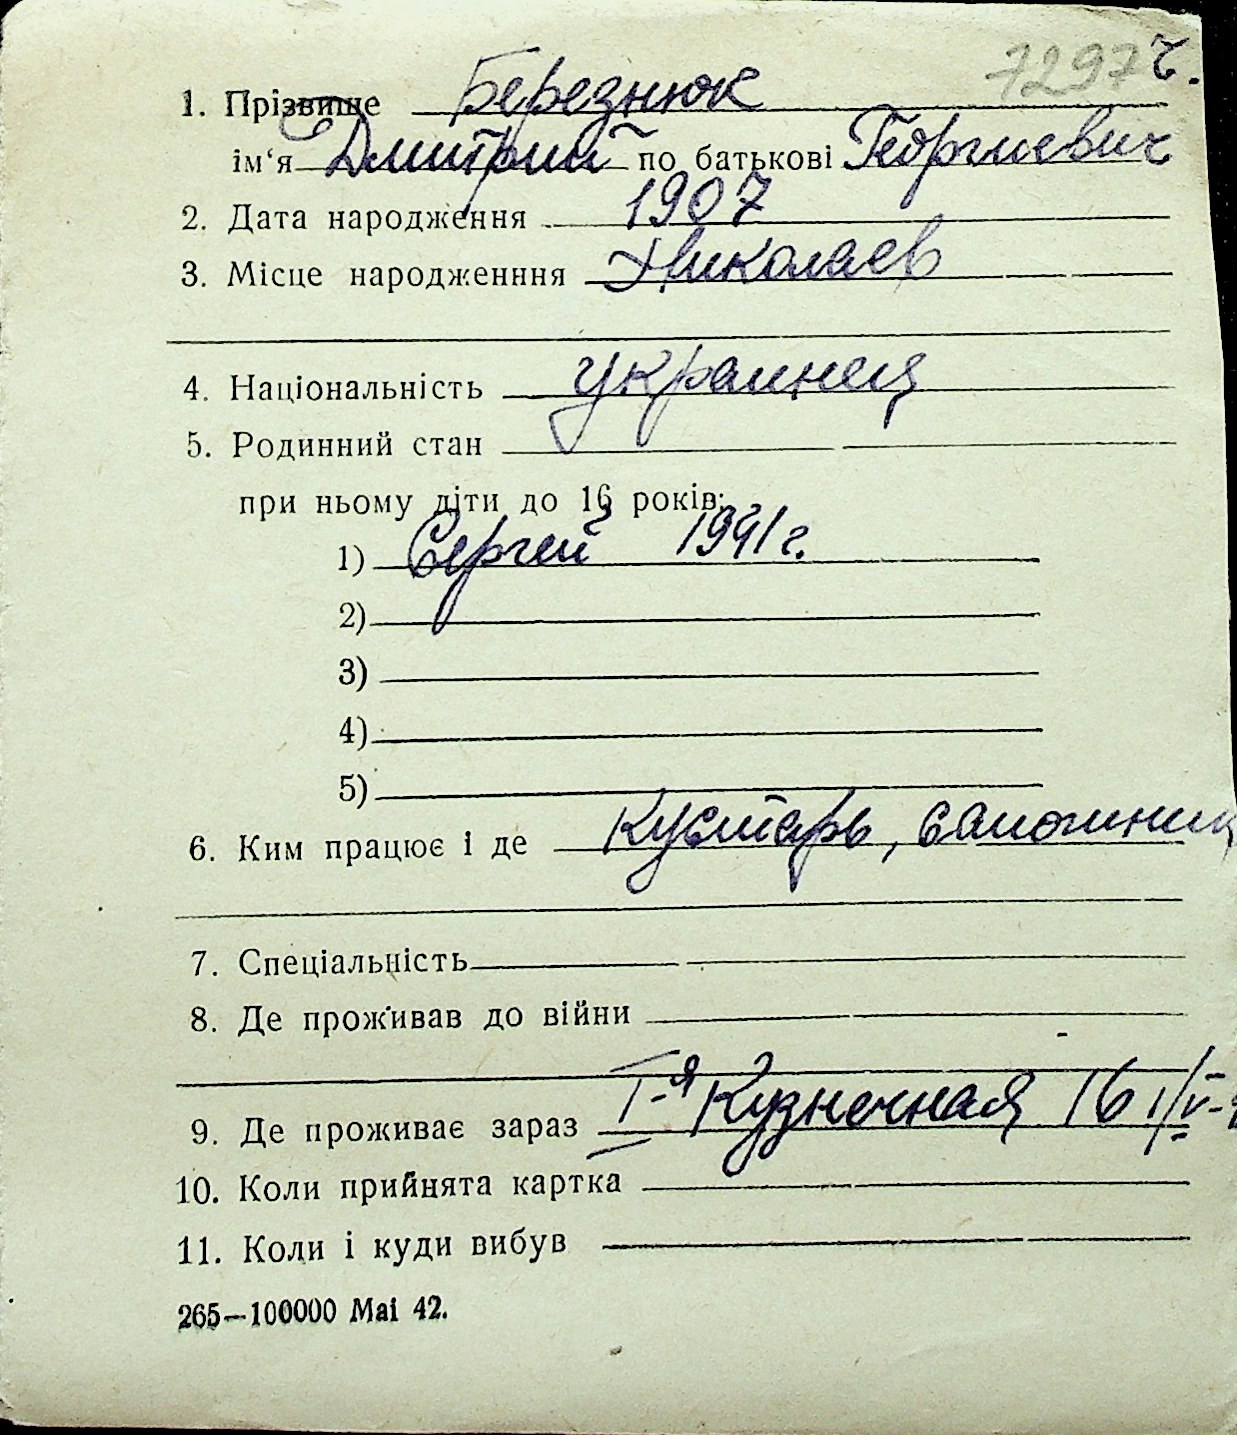 7297 ч.
1. Прізвище Березнюк
ім‘я Дмитрий по батькові Георгиевич
2. Дата народження 1907
3. Місце народженння Николаев
4. Національність украинец
5. Родинний стан
при ньому діти до 16 років:
1) Сергей 1941 г.
2)
3)
4)
5)
6. Ким працює і де Кустарь, сапожник
7. Спеціальність
8. Де проживав до війни
9. Де проживає зараз I-я Кузнечная 16
10. Коли прийнята картка
11. Коли і куди вибув
265—100000 Mai 42.